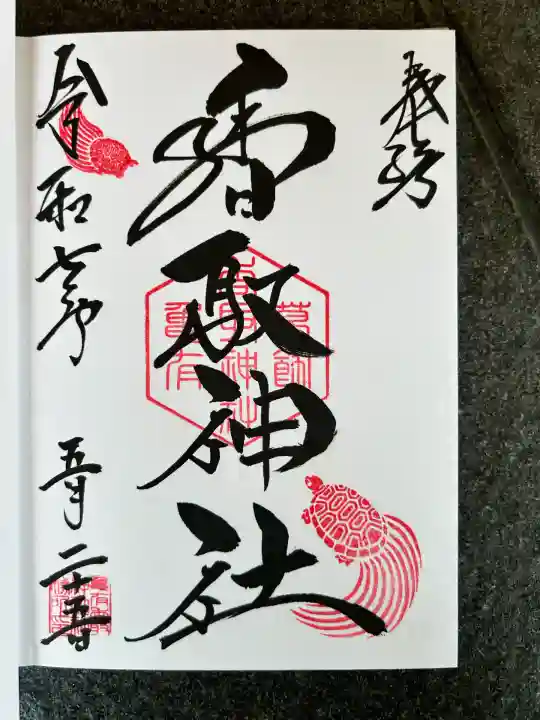 奉拝
香取神社
令和七年 五月二十五日
葛飾
香取神社
亀有